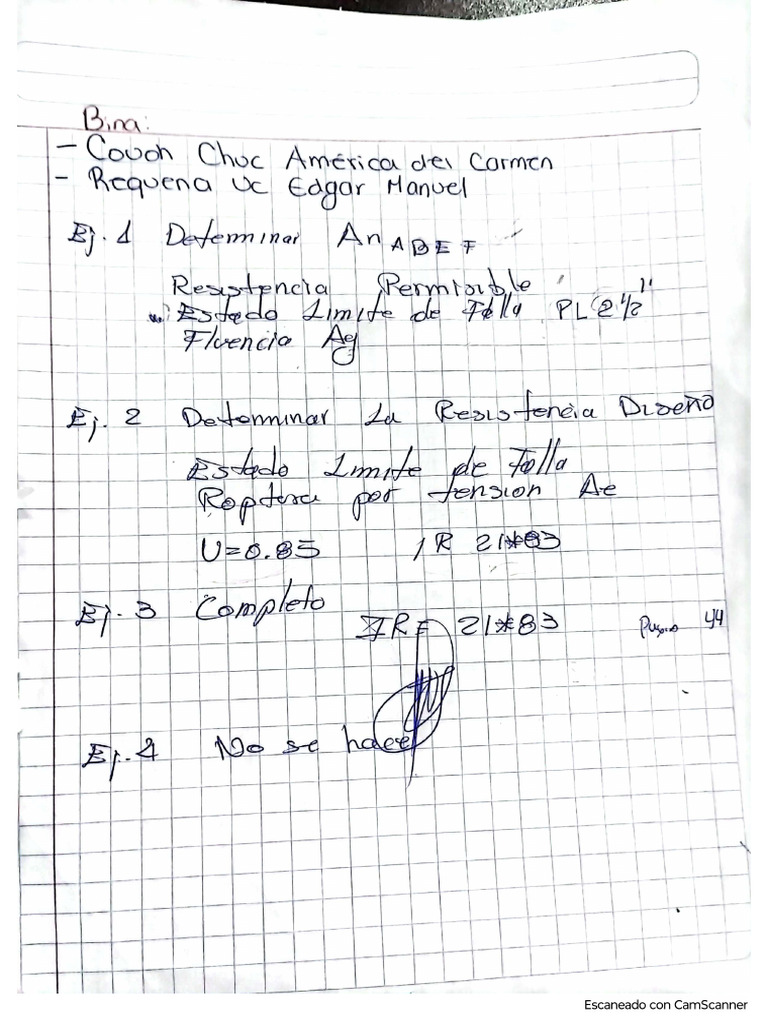 Bina:
- Couoh Chuc América del Carmen
- Requena Uc Edgar Manuel
Ej. 1 Determinar An ABEF
Resistencia Permisible
Estado Limite de Falla PL 2 1/2"
Fluencia Ag
Ej. 2 Determinar La Resistencia Diseño
Estado Limite de Falla
Roptura por tension Ae
U=0.85 IR 21*83
Ej. 3 Completo
IRE 21*83 44
Ej. 4 No se hace
Escaneado con CamScanner